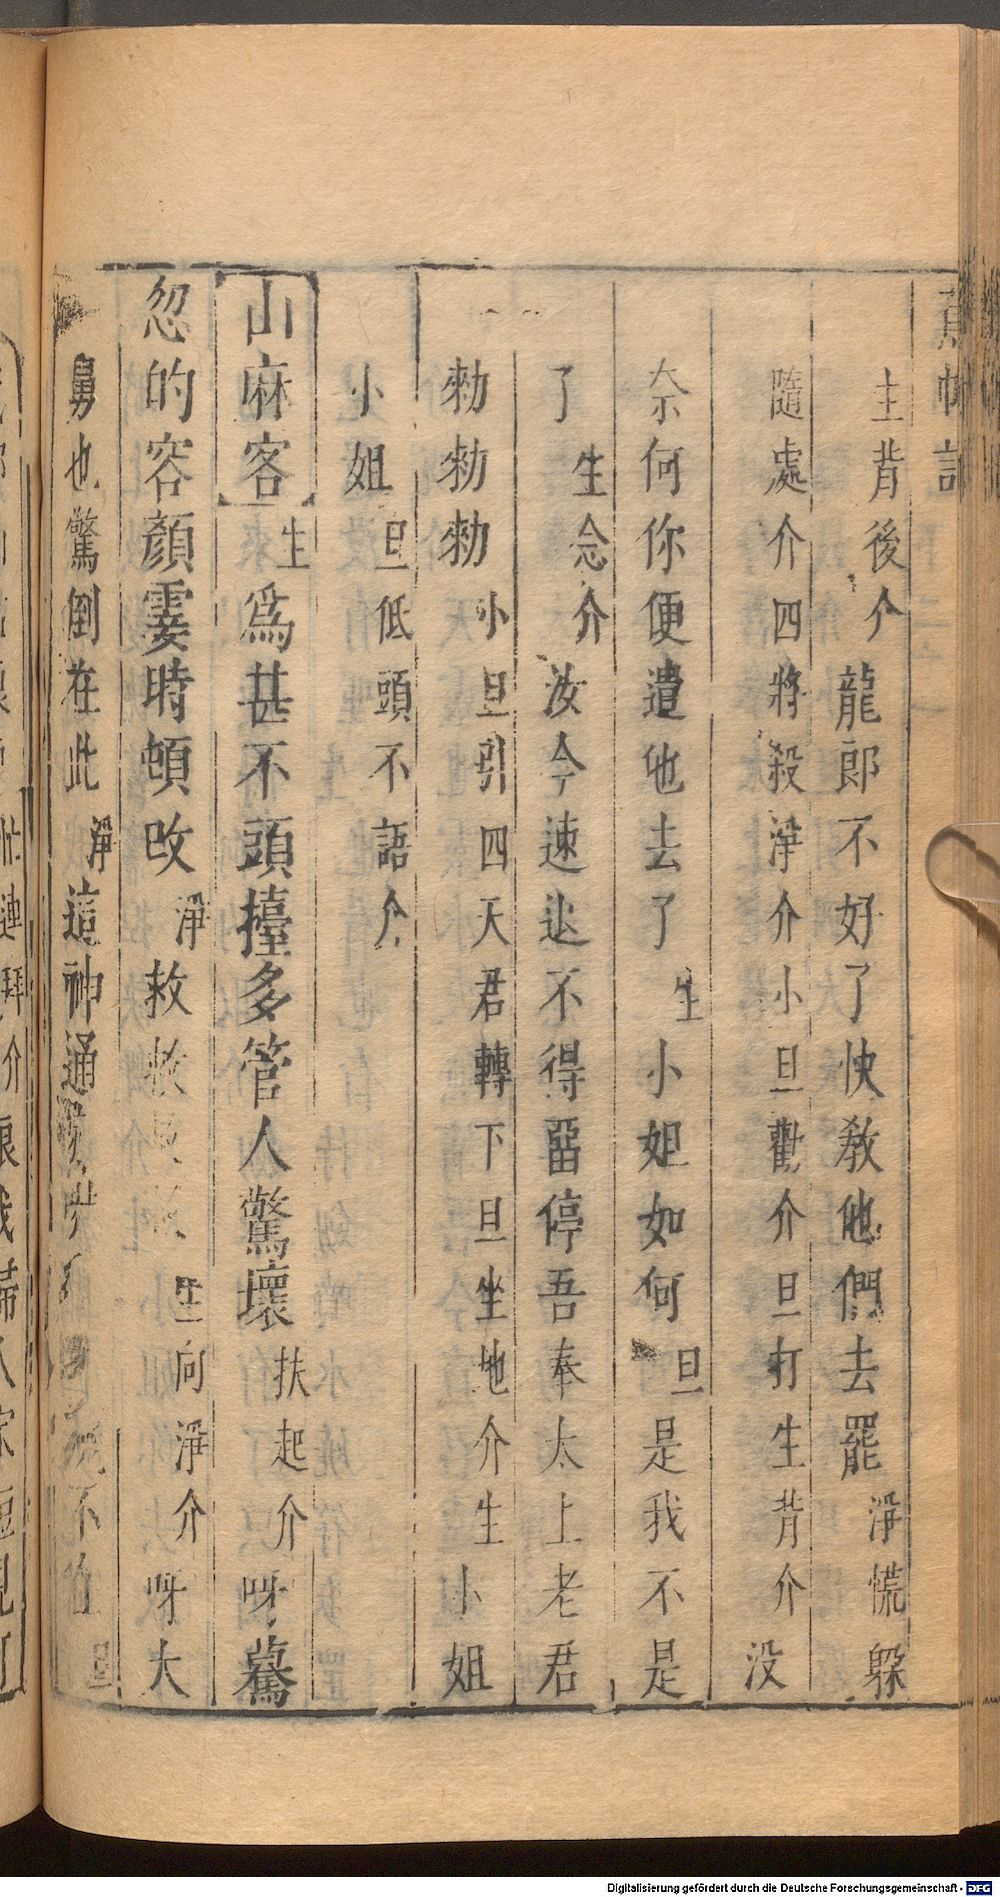 蕉帕記
主背後介龍郎不好了快教他們去罷淨慌躲
隨處介四將殺淨介小旦勸介旦打生背介没
奈何你便遣他去了生小姐如何旦是我不是
了生念介汝今速退不得畱停吾奉太上老君
勑勑勑小旦引四天君轉下旦坐地介生小姐
小姐旦低頭不語介
山麻客生爲甚不頭擡多管人驚壞扶起介呀驀
忽的容顏霎時頓改淨救救生向淨介呀大
舅也驚倒在此淨這神通不的旦
忙連拜介
Digitalisierung gefördert durch die Deutsche Forschungsgemeinschaft - DFG